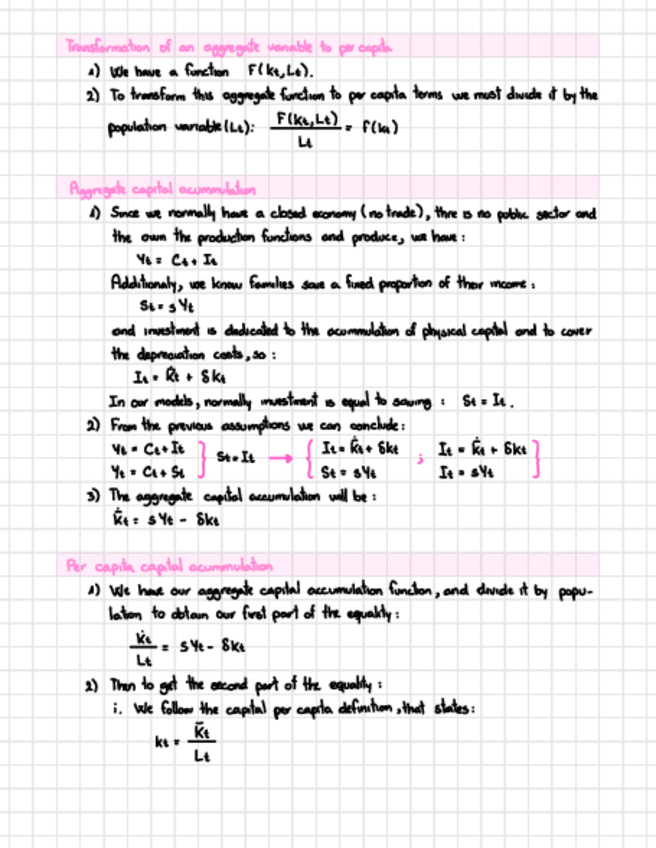 Transformation of an aggregate variable to per capita
1) We have a function F(kt,Lt).
2) To transform this aggregate function to per capita terms we must divide it by the
population variable (Lt): F(kt,Lt)/Lt = f(kt)
Aggregate capital acummulation
1) Since we normally have a closed economy (no trade), thre is no public sector and
the own the production functions and produce, we have:
Yt = Ct + It
Additionaly, we know families save a fixed proportion of their income:
St = sYt
and investment is dedicated to the acommulation of physical capital and to cover
the depreciation costs, so:
It = K̇t + δkt
In our models, normally investment is equal to saving: St = It.
2) From the previous assumptions we can conclude:
Yt = Ct + It } St = It → { It = k̇t + δkt ; It = k̇t + δkt }
Yt = Ct + St } { St = sYt It = sYt }
3) The aggregate capital accumulation will be:
k̇t = sYt - δkt
Per capita capital acummulation
1) We have our aggregate capital accumulation function, and divide it by popu-
lation to obtain our first part of the equality:
k̇t/Lt = sYt - δkt
2) Then to get the second part of the equality:
i. We follow the capital per capita definition, that states:
kt = K̄t/Lt